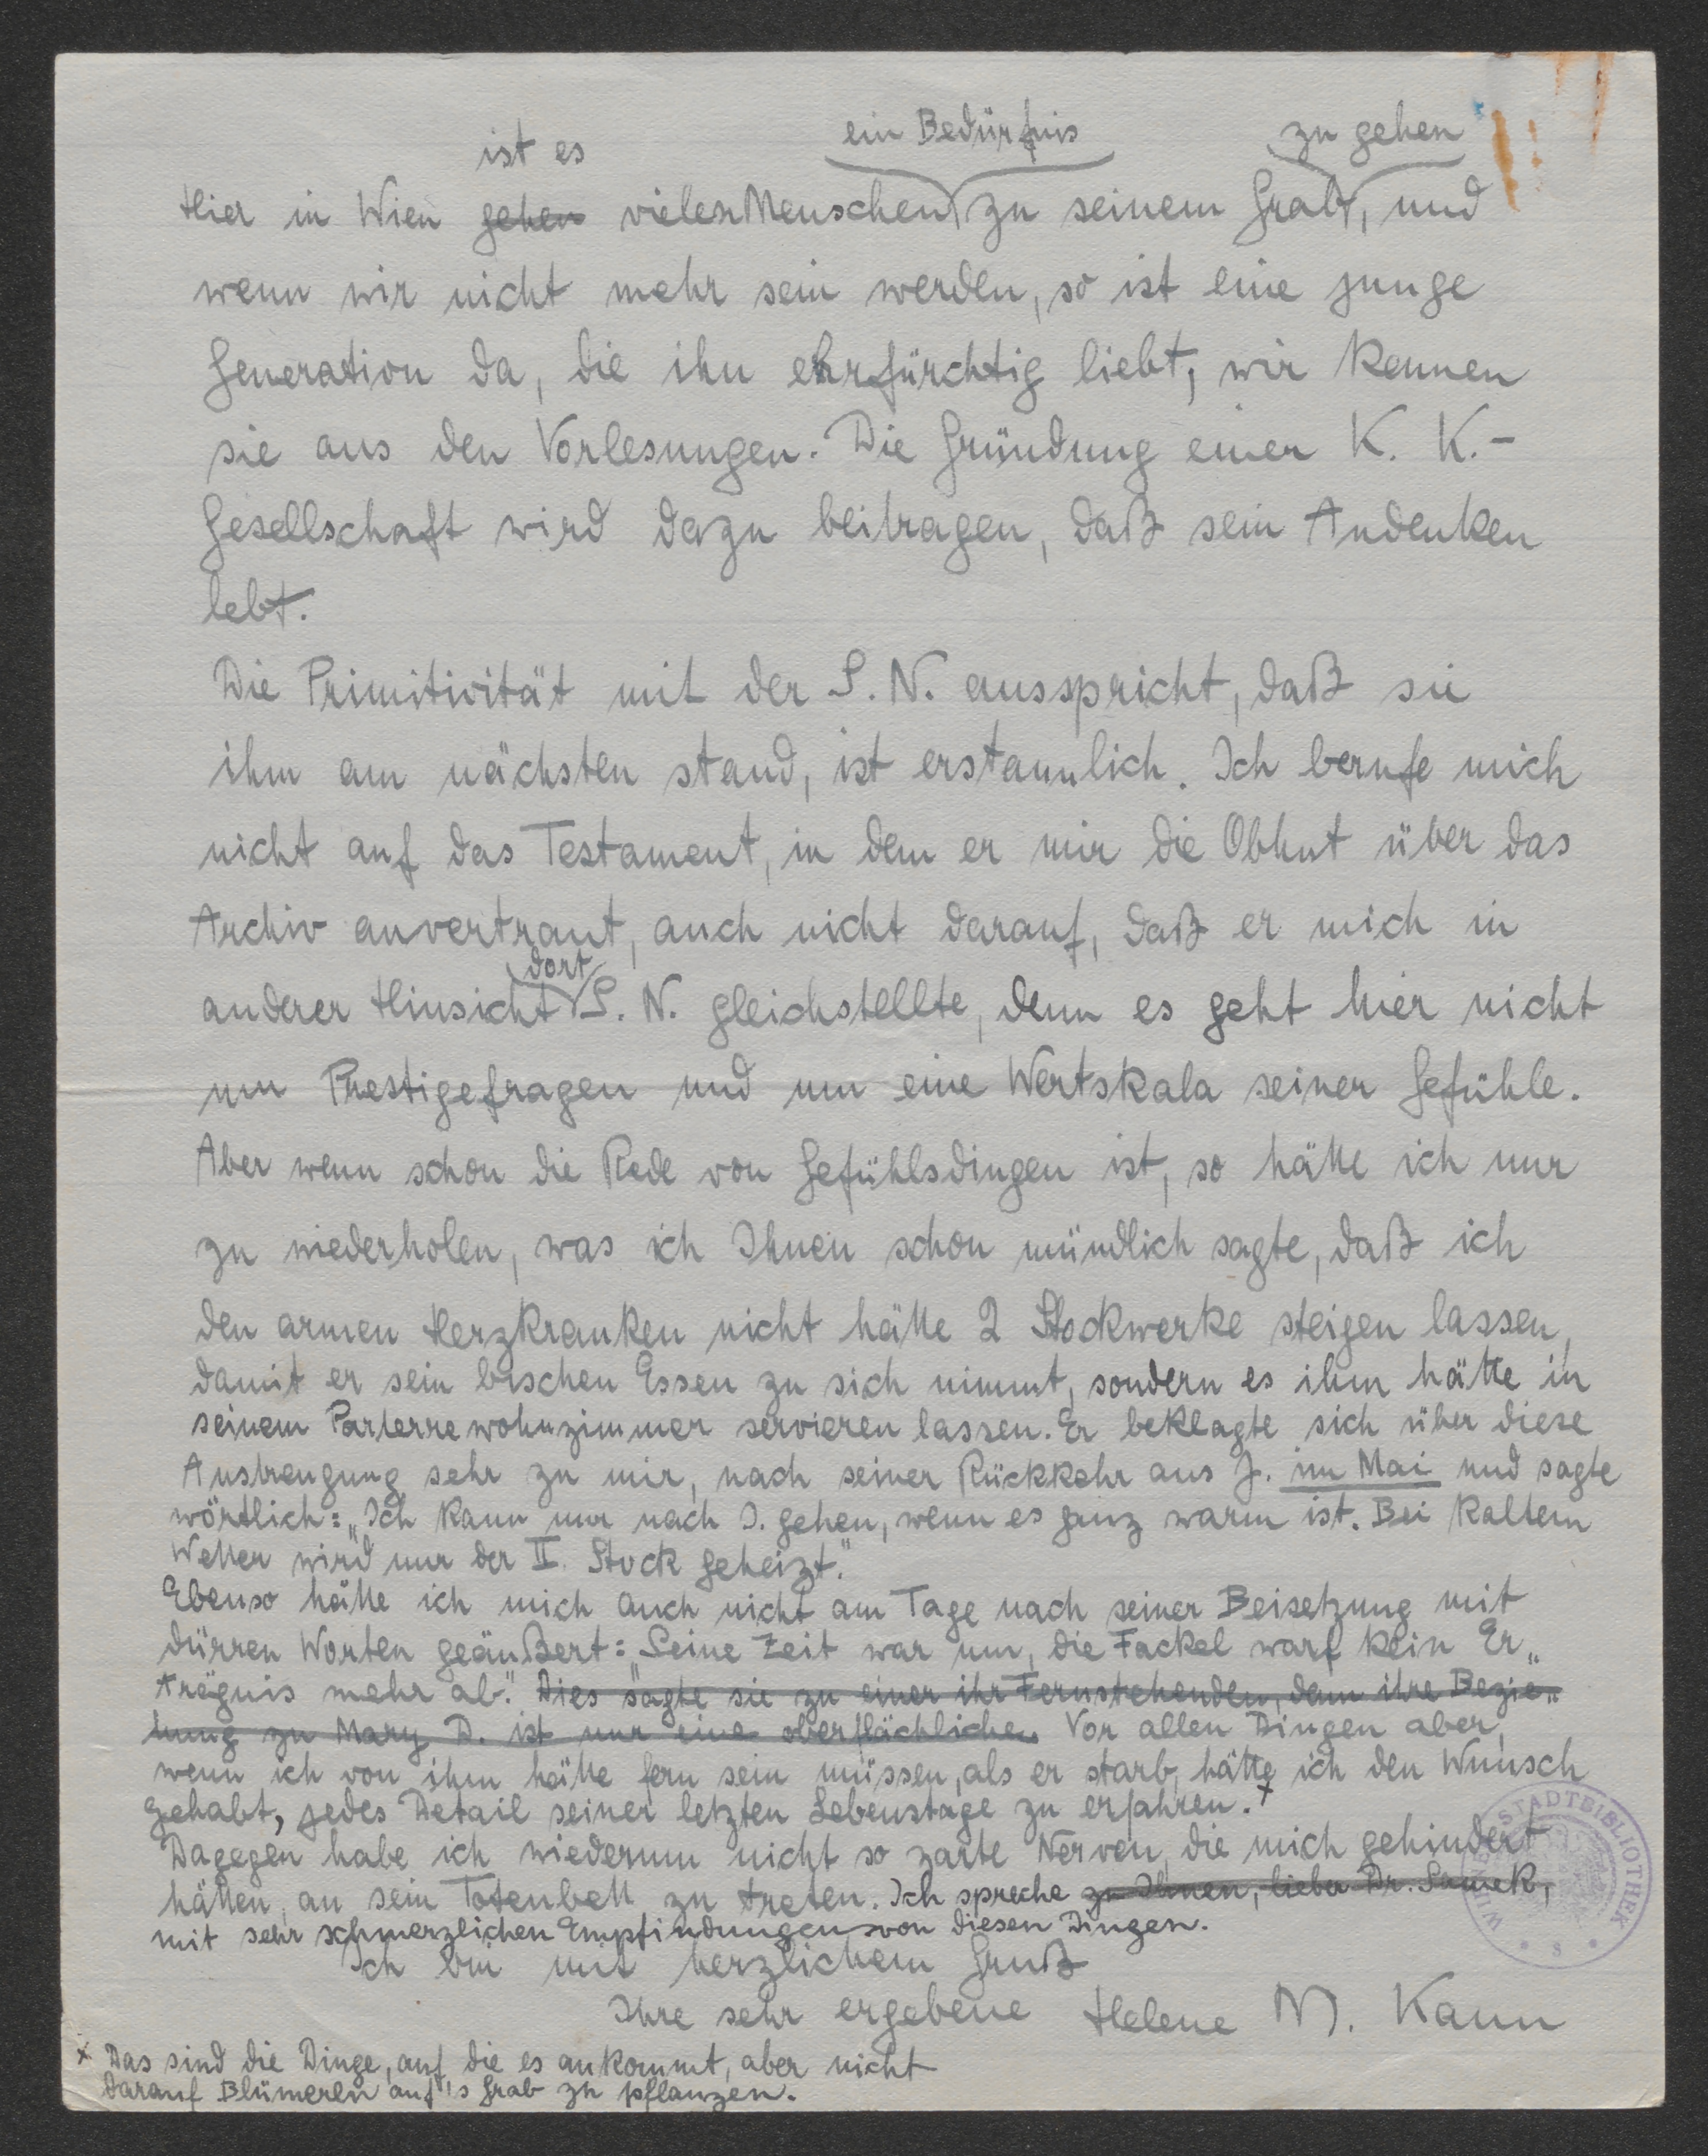 ist es ein Bedürfnis zu gehen
Hier in Wien gehen vielen Menschen zu seinem Grab, und
wenn wir nicht mehr sein werden, so ist eine junge
Generation da, die ihn ehrfürchtig liebt, wir kennen
sie aus den Vorlesungen. Die Gründung einer K. K.-
Gesellschaft wird dazu beitragen, daß sein Andenken
lebt.
Die Primitivität mit der S. N. ausspricht, daß sie
ihm am nächsten stand, ist erstaunlich. Ich berufe mich
nicht auf das Testament, in dem er mir die Obhut über das
Archiv anvertraut, auch nicht darauf, daß er mich in
dort
anderer Hinsicht S. N. gleichstellte, denn es geht hier nicht
um Prestigefragen und um eine Wertskala seiner Gefühle.
Aber wenn schon die Rede von Gefühlsdingen ist, so hätte ich nur
zu wiederholen, was ich Ihnen schon mündlich sagte, daß ich
den armen Herzkranken nicht hätte 2 Stockwerke steigen lassen,
damit er sein bischen Essen zu sich nimmt, sondern es ihm hätte in
seinem Parterrewohnzimmer servieren lassen. Er beklagte sich über diese
Anstrengung sehr zu mir, nach seiner Rückkehr aus J. im Mai und sagte
wörtlich: „Ich kann nur nach J. gehen, wenn es ganz warm ist. Bei kaltem
Wetter wird nur der II. Stock geheizt."
Ebenso hätte ich mich auch nicht am Tage nach seiner Beisetzung mit
dürren Worten geäußert: „Seine Zeit war um, die Fackel warf kein Er„
trägnis mehr ab." Dies sagte sie zu einer ihr Fernstehenden, denn ihre Bezie„
hung zu Mary D. ist nur eine oberflächliche. Vor allen Dingen aber,
wenn ich von ihm hätte fern sein müssen, als er starb, hätte ich den Wunsch
gehabt, jedes Detail seiner letzten Lebenstage zu erfahren.x
Dagegen habe ich wiederum nicht so zarte Nerven, die mich gehindert
hätten, an sein Totenbett zu treten. Ich spreche zu Ihnen, lieber Dr. Samek,
mit sehr schmerzlichen Empfindungen von diesen Dingen.
Ich bin mit herzlichem Gruß
Ihre sehr ergebene Helene M. Kann
x Das sind die Dinge, auf die es ankommt, aber nicht
darauf Blümerln auf's Grab zu pflanzen.
WIENER STADTBIBLIOTHEK
* 8 *